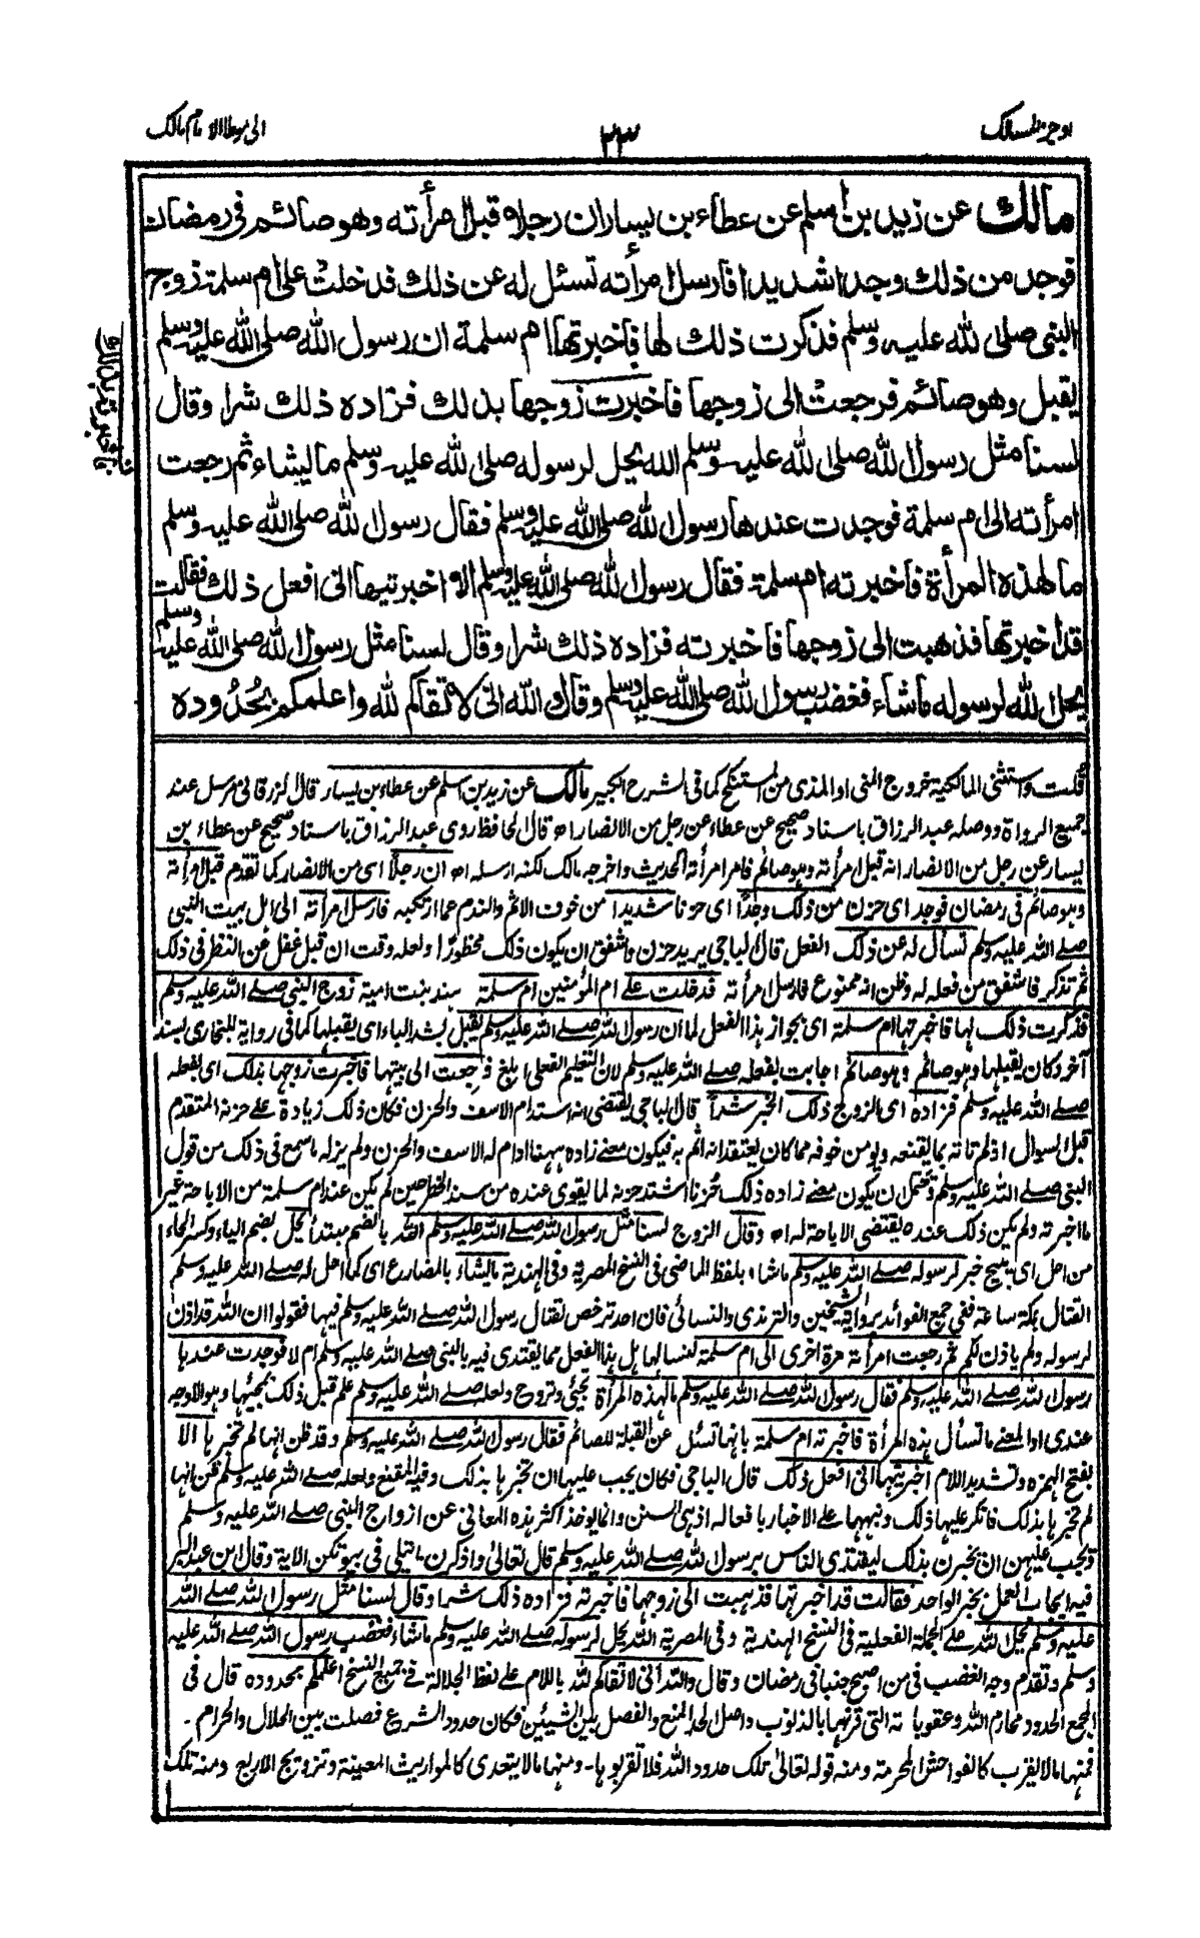 اوجز المسالك
٢٣
الى موطا الامام مالك
مالك عن زيد بن اسلم عن عطاء بن يسار ان رجلا قبل امرأته وهو صائم فى رمضان
فوجد من ذلك وجدا شديدا فارسل امرأته تسئل له عن ذلك فدخلت على ام سلمة زوج
النبى صلى الله عليه وسلم فذكرت ذلك لها فاخبرتها ام سلمة ان رسول الله صلى الله عليه وسلم
يقبل وهو صائم فرجعت الى زوجها فاخبرت زوجها بذلك فزاده ذلك شرا وقال
لسنا مثل رسول الله صلى الله عليه وسلم الله يحل لرسوله صلى الله عليه وسلم ما يشاء ثم رجعت
امرأته الى ام سلمة فوجدت عندها رسول الله صلى الله عليه وسلم فقال رسول الله صلى الله عليه وسلم
ما لهذه المرأة فاخبرته ام سلمة فقال رسول الله صلى الله عليه وسلم الا اخبرتيها انى افعل ذلك فقالت
قد اخبرتها فذهبت الى زوجها فاخبرته فزاده ذلك شرا وقال لسنا مثل رسول الله صلى الله عليه وسلم
يحل الله لرسوله ما شاء فغضب رسول الله صلى الله عليه وسلم وقال والله انى لاتقاكم لله واعلمكم بحُدُوده
قلت واستثنى المالكية خروج المنى او المذى من المستنكح كما فى الشرح الكبير مالك عن زيد بن اسلم عن عطاء بن يسار قال الزرقانى مرسل عند
جميع الرواة ووصله عبد الرزاق باسناد صحيح عن عطاء عن رجل من الانصار اه قال الحافظ روى عبد الرزاق باسناد صحيح عن عطاء بن
يسار عن رجل من الانصار انه قبل امرأته وهو صائم فامر امرأته الحديث واخرجه مالك لكنه ارسله اه ان رجلا اى من الانصار كما تقدم قبل امرأته
وهو صائم فى رمضان فوجد اى حزن من ذلك وجدًا اى حزنا شديدا من خوف الاثم والندم عما ارتكبه فارسل امرأته الى اهل بيت النبى
صلے الله عليه وسلم تسأل له عن ذلك الفعل قال الباجى يريد حزن واشفق ان يكون ذلك محظورًا ولعله وقت ان قبل غفل عن النظر فى ذلك
ثم تذكر فاشفق من فعله له وظن انه ممنوع فارسل امرأته فدخلت علے ام المؤمنين ام سلمة هند بنت امية زوج النبى صلے الله عليه وسلم
فذكرت ذلك لها فاخبرتها ام سلمة اى بجواز هذا الفعل لما ان رسول الله صلے الله عليه وسلم يقبل بشد الباء اى يقبلها كما فى رواية للبخارى بسند
آخر وكان يقبلها وهو صائم وهو صائم اجابت بفعله صلے الله عليه وسلم لان التعليم الفعلى ابلغ فرجعت الى بيتها فاخبرت زوجها بذلك اى بفعله
صلے الله عليه وسلم فزاده اى الزوج ذلك الخبر شراً قال الباجى يقتضى انه استدام الاسف والحزن فكان ذلك زيادة علے حزنه المتقدم
قبل السوال اذ لم تاته بما يقنعه ويومن خوفه مما كان يعتقد انه اثم به فيكون معنے زاده ههنا ادام له الاسف والحزن ولم يزله ما سمع فى ذلك من قول
النبى صلے الله عليه وسلم ويحتمل ان يكون معنے زاده ذلك حُزنا اشتد حزنه لما يقوى عنده من سند الخطر حين لم يكن عند ام سلمة من الاباحة غير
ما اخبرته ولم يكن ذلك عنده يقتضى الاباحة له اه وقال الزوج لسنا مثل رسول الله صلے الله عليه وسلم الله بالضم مبتدأ يحل بضم الياء وكسر الحاء
من احل اى يبيح خبر لرسوله صلے الله عليه وسلم ما شاء بلفظ الماضى فى النسخ المصرية وفى الهندية ما يشاء بالمضارع اى كما احل له صلے الله عليه وسلم
القتال بمكة ساعة ففى جمع الفوائد برواية الشيخين والترمذى والنسائى فان احد ترخص لقتال رسول الله صلے الله عليه وسلم فيها فقولوا ان الله قد اذن
لرسوله ولم ياذن لكم ثم رجعت امرأته مرة اخرى الى ام سلمة لتسالها هل هذا الفعل مما يقتدى فيه بالنبى صلے الله عليه وسلم ام لا فوجدت عندها
رسول الله صلے الله عليه وسلم فقال رسول الله صلے الله عليه وسلم ما لهذه المرأة تجئى وتروح ولعله صلے الله عليه وسلم علم قبل ذلك بمجيئها وهو الاوجه
عندى او المعنے ما تسأل هذه المرأة فاخبرته ام سلمة بانها تسئل عن القبلة للصائم فقال رسول الله صلے الله عليه وسلم وقد ظن انها لم تخبرها الا
بفتح الهمزه وتشديد اللام اخبرتيها انى افعل ذلك قال الباجى فكان يجب عليها ان تخبرها بذلك وفيه المقنع ولعله صلے الله عليه وسلم ظن انها
لم تخبرها بذلك فانكر عليها ذلك ونبهها علے الاخبار بافعاله اذ هى السنن وانما يوخذ اكثر هذه المعانى عن ازواج النبى صلے الله عليه وسلم
ويجب عليهن ان يخبرن بذلك ليقتدى الناس برسول الله صلے الله عليه وسلم قال تعالىٰ واذكرن ما يتلى فى بيوتكن الاية وقال ابن عبد البر
فيه ايجاب العمل بخبر الواحد فقالت قد اخبرتها فذهبت الى زوجها فاخبرته فزاده ذلك شرا وقال لسنا مثل رسول الله صلے الله
عليه وسلم يحل الله علے الجملة الفعلية فى النسخ الهندية وفى المصرية الله يحل لرسوله صلے الله عليه وسلم ما شاء فغضب رسول الله صلے الله عليه
وسلم وتقدم وجه الغضب فى من اصبح جنبا فى رمضان وقال والله انى لاتقاكم لله باللام علے لفظ الجلالة فے جميع النسخ اعلمكم بحدوده قال فى
المجمع الحدود محارم الله وعقوباته التى قرنها بالذنوب واصل الحد المنع والفصل بين الشيئين فكان حدود الشرع فصلت بين الحلال والحرام -
فمنها ما لا يقرب كالفواحش المحرمة ومنه قوله تعالىٰ تلك حدود الله فلا تقربوها - ومنها ما لا يتعدى كالمواريث المعينة وتزويج الاربع ومنه تلك